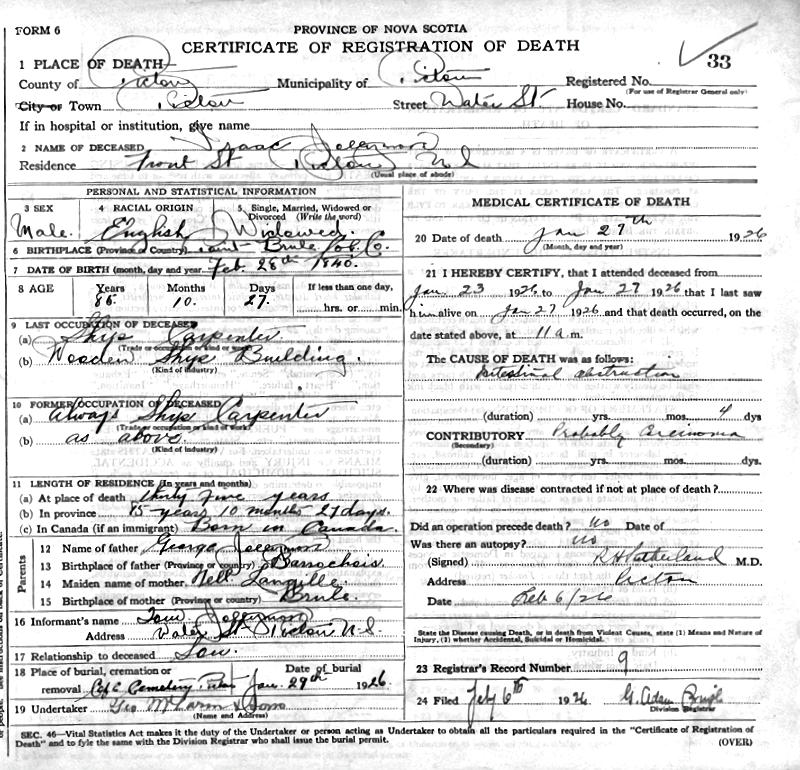 FORM 6
PROVINCE OF NOVA SCOTIA
CERTIFICATE OF REGISTRATION OF DEATH
33
1 PLACE OF DEATH
County of Pictou Municipality of Pictou Registered No.
(For use of Registrar General only)
City or Town Pictou Street Water St. House No.
If in hospital or institution, give name
2 NAME OF DECEASED Isaac Jefferson
Residence Front St Pictou N S
(Usual place of abode)
PERSONAL AND STATISTICAL INFORMATION
3 SEX 4 RACIAL ORIGIN 5 Single, Married, Widowed or Divorced (Write the word)
Male. English Widowed.
6 BIRTHPLACE (Province or Country) Brule Col. Co.
7 DATE OF BIRTH (month, day and year) Feb. 28th 1840.
8 AGE Years Months Days If less than one day,
85. 10. 27. hrs. or min.
9 LAST OCCUPATION OF DECEASED
(a) Ship Carpenter
(Trade or occupation or kind of work)
(b) Wooden Ship Building.
(Kind of industry)
10 FORMER OCCUPATION OF DECEASED
(a) Always Ship Carpenter
(Trade or occupation or kind of work)
(b) as above.
(Kind of industry)
11 LENGTH OF RESIDENCE (In years and months)
(a) At place of death thirty five years
(b) In province 85 years 10 months 27 days.
(c) In Canada (if an immigrant) Born in Canada.
Parents
12 Name of father George Jefferson
13 Birthplace of father (Province or country) Barrachois
14 Maiden name of mother Nell Langille.
15 Birthplace of mother (Province or country) Brule.
16 Informant's name Tom Jefferson
Address Water St Pictou N.S.
17 Relationship to deceased Son.
18 Place of burial, cremation or removal Cemetery Date of burial Jan. 29th 1926.
19 Undertaker Geo & Sons
(Name and Address)
MEDICAL CERTIFICATE OF DEATH
20 Date of death Jan 27th 1926
(Month, day and year)
21 I HEREBY CERTIFY, that I attended deceased from
Jan 23 1926 to Jan 27 1926 that I last saw
him alive on Jan 27 1926 and that death occurred, on the
date stated above, at 11 a m.
The CAUSE OF DEATH was as follows:
Intestinal obstruction
(duration) yrs. mos. 4 dys
CONTRIBUTORY Probably Carcinoma
(Secondary)
(duration) yrs. mos. dys.
22 Where was disease contracted if not at place of death?
Did an operation precede death? no Date of
Was there an autopsy? no
(Signed) Sutherland M.D.
Address Pictou
Date Feb 6/26
State the Disease causing Death, or in death from Violent Causes, state (1) Means and Nature of Injury, (2) whether Accidental, Suicidal or Homicidal.
23 Registrar's Record Number 9
24 Filed Feby 6th 1926 G. Adam
Division Registrar
SEC. 46—Vital Statistics Act makes it the duty of the Undertaker or person acting as Undertaker to obtain all the particulars required in the "Certificate of Registration of
Death" and to fyle the same with the Division Registrar who shall issue the burial permit. (OVER)